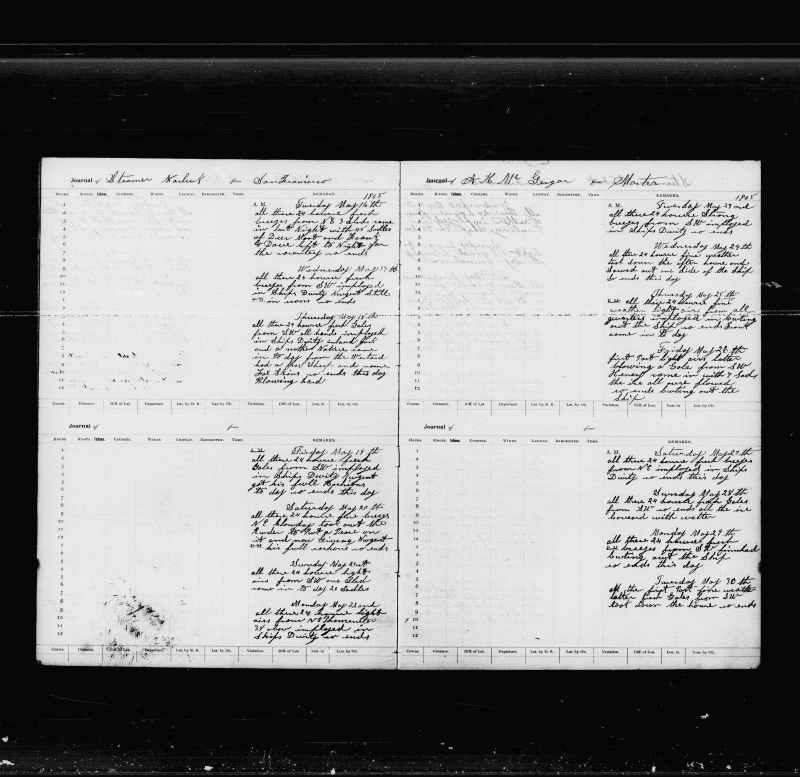 Journal of Steamer from San Francisco
HOURS. KNOTS. Fathoms. COURSES. WINDS. LEEWAY. BAROMETER. THER. REMARKS. 1905
A. M. Tuesday May 16 th
all these 24 hours fresh
breezes from NE 3 Sleds came
in last Night with 45 Saddles
of Deer Meat and
to Dave left to Night for
the country so ends
Wednesday May 17 th
all these 24 hours fresh
breezes from SW imployed
in Ships Duuty Nugent Still
P.M. in irons so ends
Thursday May 18 th
all these 24 hours fresh Gales
from SW all hands imployed
in Ships Duuty
and a nother Native came
in to day from the
had a Deer Sheep and some
Fox Skins so ends this day
Blowing hard
Course. Distance. Diff. of Lat. Departure. Lat. by D. R. Lat. by Ob. Variation. Diff. of Lon. Lon. in Lon. by Ob.
Journal of from
HOURS. KNOTS. Fathoms. COURSES. WINDS. LEEWAY. BAROMETER. THER. REMARKS.
A. M. Friday May 19 th
all these 24 hours fresh
Gales from SW imployed
in Ships Duuty Nugent
got his full
to day so ends this day
Saturday May 20 th
all these 24 hours fine breezes
NE took out the
Ruder to Put a Peace on
it and now Giveing Nugent
P.M. his full so ends
Sunday May 21 st
all these 24 hours light
airs from SW one Sled
came in to day 20 Sadles
Monday May 22 ond
all these 24 hours light
airs from NE
34 imployed in
Ships Duuty so ends
Course. Distance. Diff. of Lat. Departure. Lat. by D. R. Lat. by Ob. Variation. Diff. of Lon. Lon. in Lon. by Ob.
Journal of A. H. Mc from Master
HOURS. KNOTS. Fathoms. COURSES. WINDS. LEEWAY. BAROMETER. THER. REMARKS. 1905
A. M. Tuesday May 23 ord
all these 24 hours Strong
breezes from SW imployed
in Ships Duuty so ends
Wednesday May 24 th
all these 24 hours fine weather
took down the after house and
Sawed out one Side of the Ship
so ends this day
Thursday May 25 th
P.M. all these 24 hours fine
weather light airs from all
quarters imployed in Cuting
out the Ship so ends
came in to day
Friday May 26 th
first Part light airs latter
blowing a Gale from SW
came in with 7
the ice all over flowed
so ends Cuting out the
Ship
Course. Distance. Diff. of Lat. Departure. Lat. by D. R. Lat. by Ob. Variation. Diff. of Lon. Lon. in Lon. by Ob.
Journal of from
HOURS. KNOTS. Fathoms. COURSES. WINDS. LEEWAY. BAROMETER. THER. REMARKS.
A. M. Saturday May 27 th
all these 24 hours fresh breezes
from NE imployed in Ships
Duuty so ends this day
Sunday May 28 th
all these 24 hours fresh Gales
from SW so ends all the ice
Coverd with watter
Monday May 29 th
all these 24 hours fresh
P.M. breezes from SW finished
Cuting out the Ship
so ends this day
Tuesday May 30 th
the first Part fine weather
latter fresh Gales from SW
took down the house so ends
Course. Distance. Diff. of Lat. Departure. Lat. by D. R. Lat. by Ob. Variation. Diff. of Lon. Lon. in Lon. by Ob.